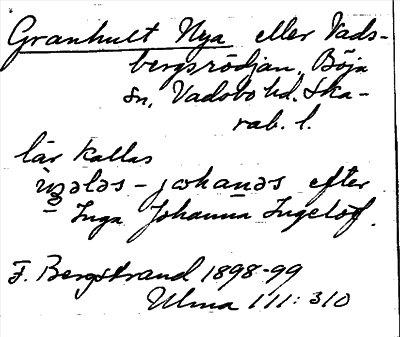 Granhult Nya eller Vads-
bergsrödjan, Böja
sn, Vadsbo hd. Ska-
rab. l.
lär kallas
iŋələs - johanəs efter
Inga Johanna Ingelöf.
F. Bergstrand 1898-99
Ulma 111:310